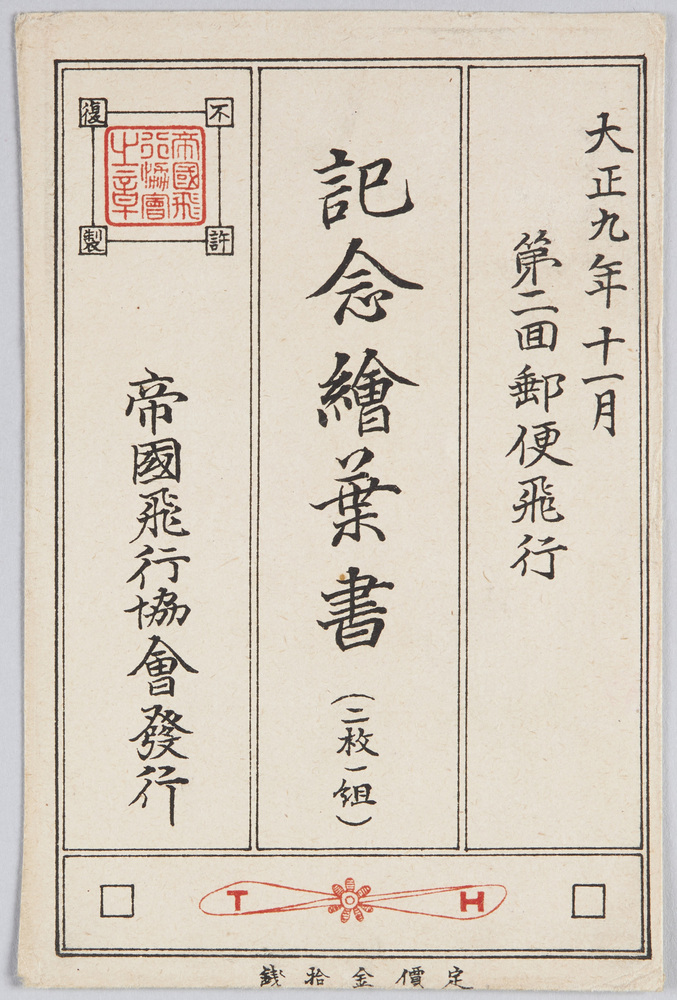 大正九年十一月
第二回郵便飛行
記念繪葉書
(二枚一組)
不許復製
帝國飛行協會之章
帝國飛行協會發行
T H
定價金拾錢